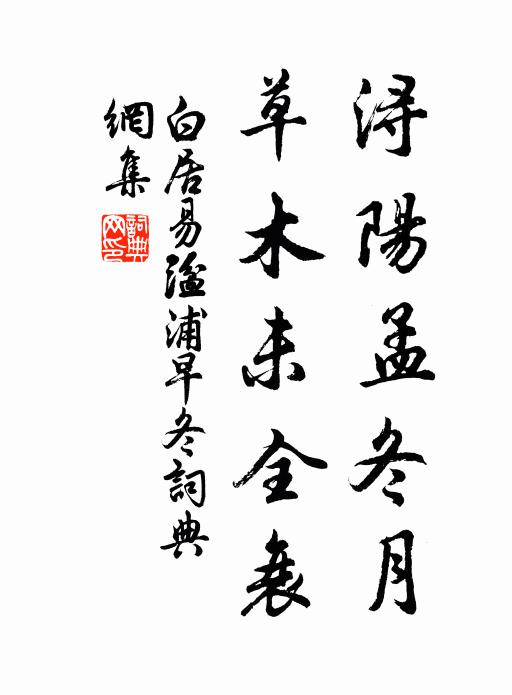 浔陽孟冬月
草木未全衰
白居易溢浦早冬詞典
網集
詞典网印